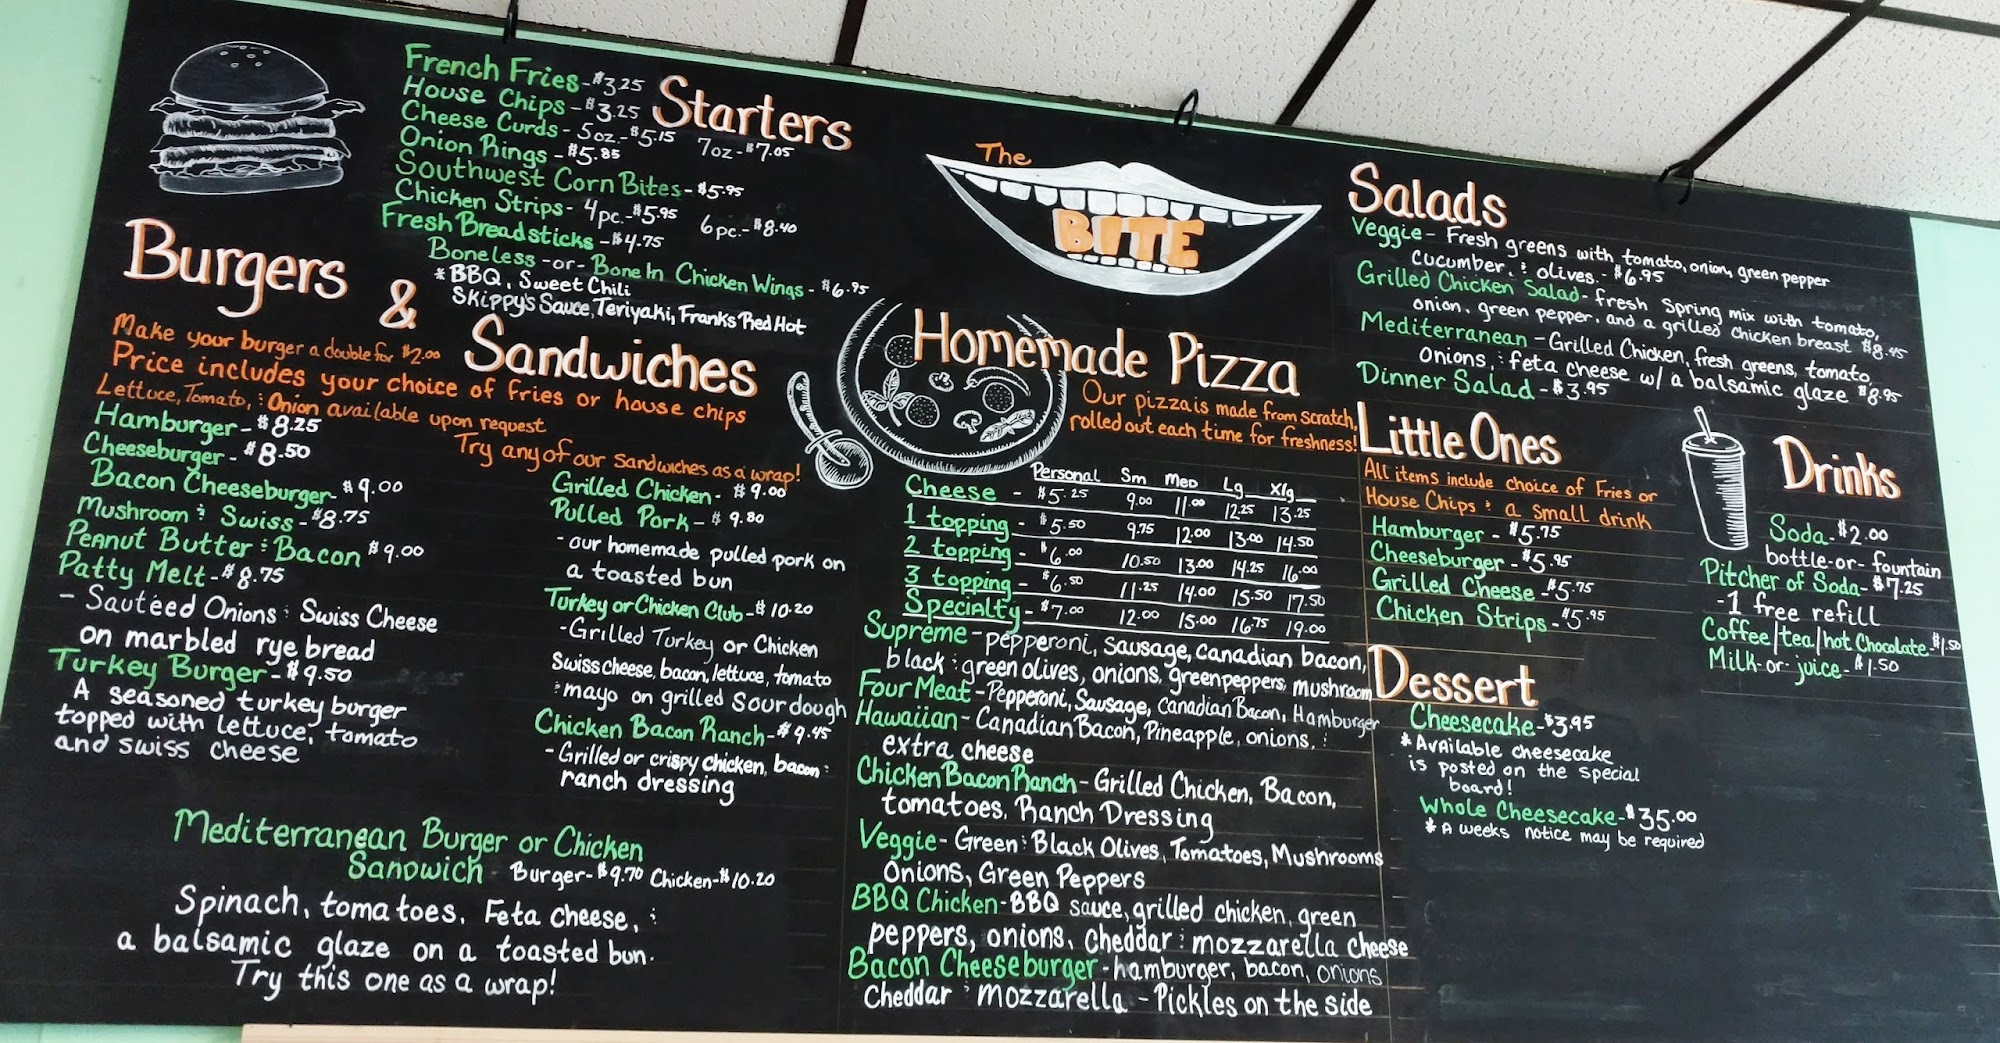 French Fries - $3.25
House Chips - $3.25
Cheese Curds - 5oz. - $5.15 7oz - $7.05
Onion Rings - $5.85
Southwest Corn Bites - $5.95
Chicken Strips - 4pc. - $5.95 6pc. - $8.40
Fresh Breadsticks - $4.75
Boneless -or- Bone In Chicken Wings - $6.95
* BBQ, Sweet Chili
Skippy's Sauce, Teriyaki, Franks Red Hot
Starters
The
BITE
Burgers
&
Sandwiches
Make your burger a double for $2.00
Price includes your choice of fries or house chips
Lettuce, Tomato, & Onion available upon request
Try any of our sandwiches as a wrap!
Hamburger - $8.25
Cheeseburger - $8.50
Bacon Cheeseburger - $9.00
Mushroom & Swiss - $8.75
Peanut Butter & Bacon $9.00
Patty Melt - $8.75
- Sautéed Onions & Swiss Cheese
on marbled rye bread
Turkey Burger - $9.50
A seasoned turkey burger
topped with lettuce, tomato
and swiss cheese
Grilled Chicken - $9.00
Pulled Pork - $9.80
- our homemade pulled pork on
a toasted bun
Turkey or Chicken Club - $10.20
- Grilled Turkey or Chicken
Swiss cheese, bacon, lettuce, tomato
& mayo on grilled Sourdough
Chicken Bacon Ranch - $9.45
- Grilled or crispy chicken, bacon &
ranch dressing
Mediterranean Burger or Chicken
Sandwich - Burger - $9.70 Chicken - $10.20
Spinach, tomatoes, Feta Cheese, &
a balsamic glaze on a toasted bun.
Try this one as a wrap!
Homemade Pizza
Our pizza is made from scratch,
rolled out each time for freshness!
Personal Sm Med Lg Xlg
Cheese - $5.25 9.00 11.00 12.25 13.25
1 topping - $5.50 9.75 12.00 13.00 14.50
2 topping - $6.00 10.50 13.00 14.25 16.00
3 topping - $6.50 11.25 14.00 15.50 17.50
Specialty - $7.00 12.00 15.00 16.75 19.00
Supreme - pepperoni, Sausage, Canadian bacon,
black & green olives, onions, green peppers, mushroom
Four Meat - Pepperoni, Sausage, Canadian Bacon, Hamburger
Hawaiian - Canadian Bacon, Pineapple, onions, &
extra cheese
Chicken Bacon Ranch - Grilled Chicken, Bacon,
tomatoes, Ranch Dressing
Veggie - Green & Black Olives, Tomatoes, Mushrooms
Onions, Green Peppers
BBQ Chicken - BBQ sauce, grilled chicken, green
peppers, onions, cheddar & mozzarella cheese
Bacon Cheeseburger - hamburger, bacon, onions
Cheddar & mozzarella - Pickles on the side
Salads
Veggie - Fresh greens with tomato, onion, green pepper
cucumber, & olives. - $6.95
Grilled Chicken Salad - fresh Spring mix with tomato,
onion, green pepper, and a grilled chicken breast $8.45
Mediterranean - Grilled Chicken, fresh greens, tomato
onions, & feta cheese w/ a balsamic glaze $8.95
Dinner Salad - $3.95
Little Ones
All items include choice of Fries or
House Chips & a small drink
Hamburger - $5.75
Cheeseburger - $5.95
Grilled Cheese - $5.75
Chicken Strips - $5.95
Drinks
Soda - $2.00
bottle -or- fountain
Pitcher of Soda - $7.25
- 1 free refill
Coffee/tea/hot Chocolate - $1.50
Milk -or- juice - $1.50
Dessert
Cheesecake - $3.95
* Available cheesecake
is posted on the special
board!
Whole Cheesecake - $35.00
* A weeks notice may be required